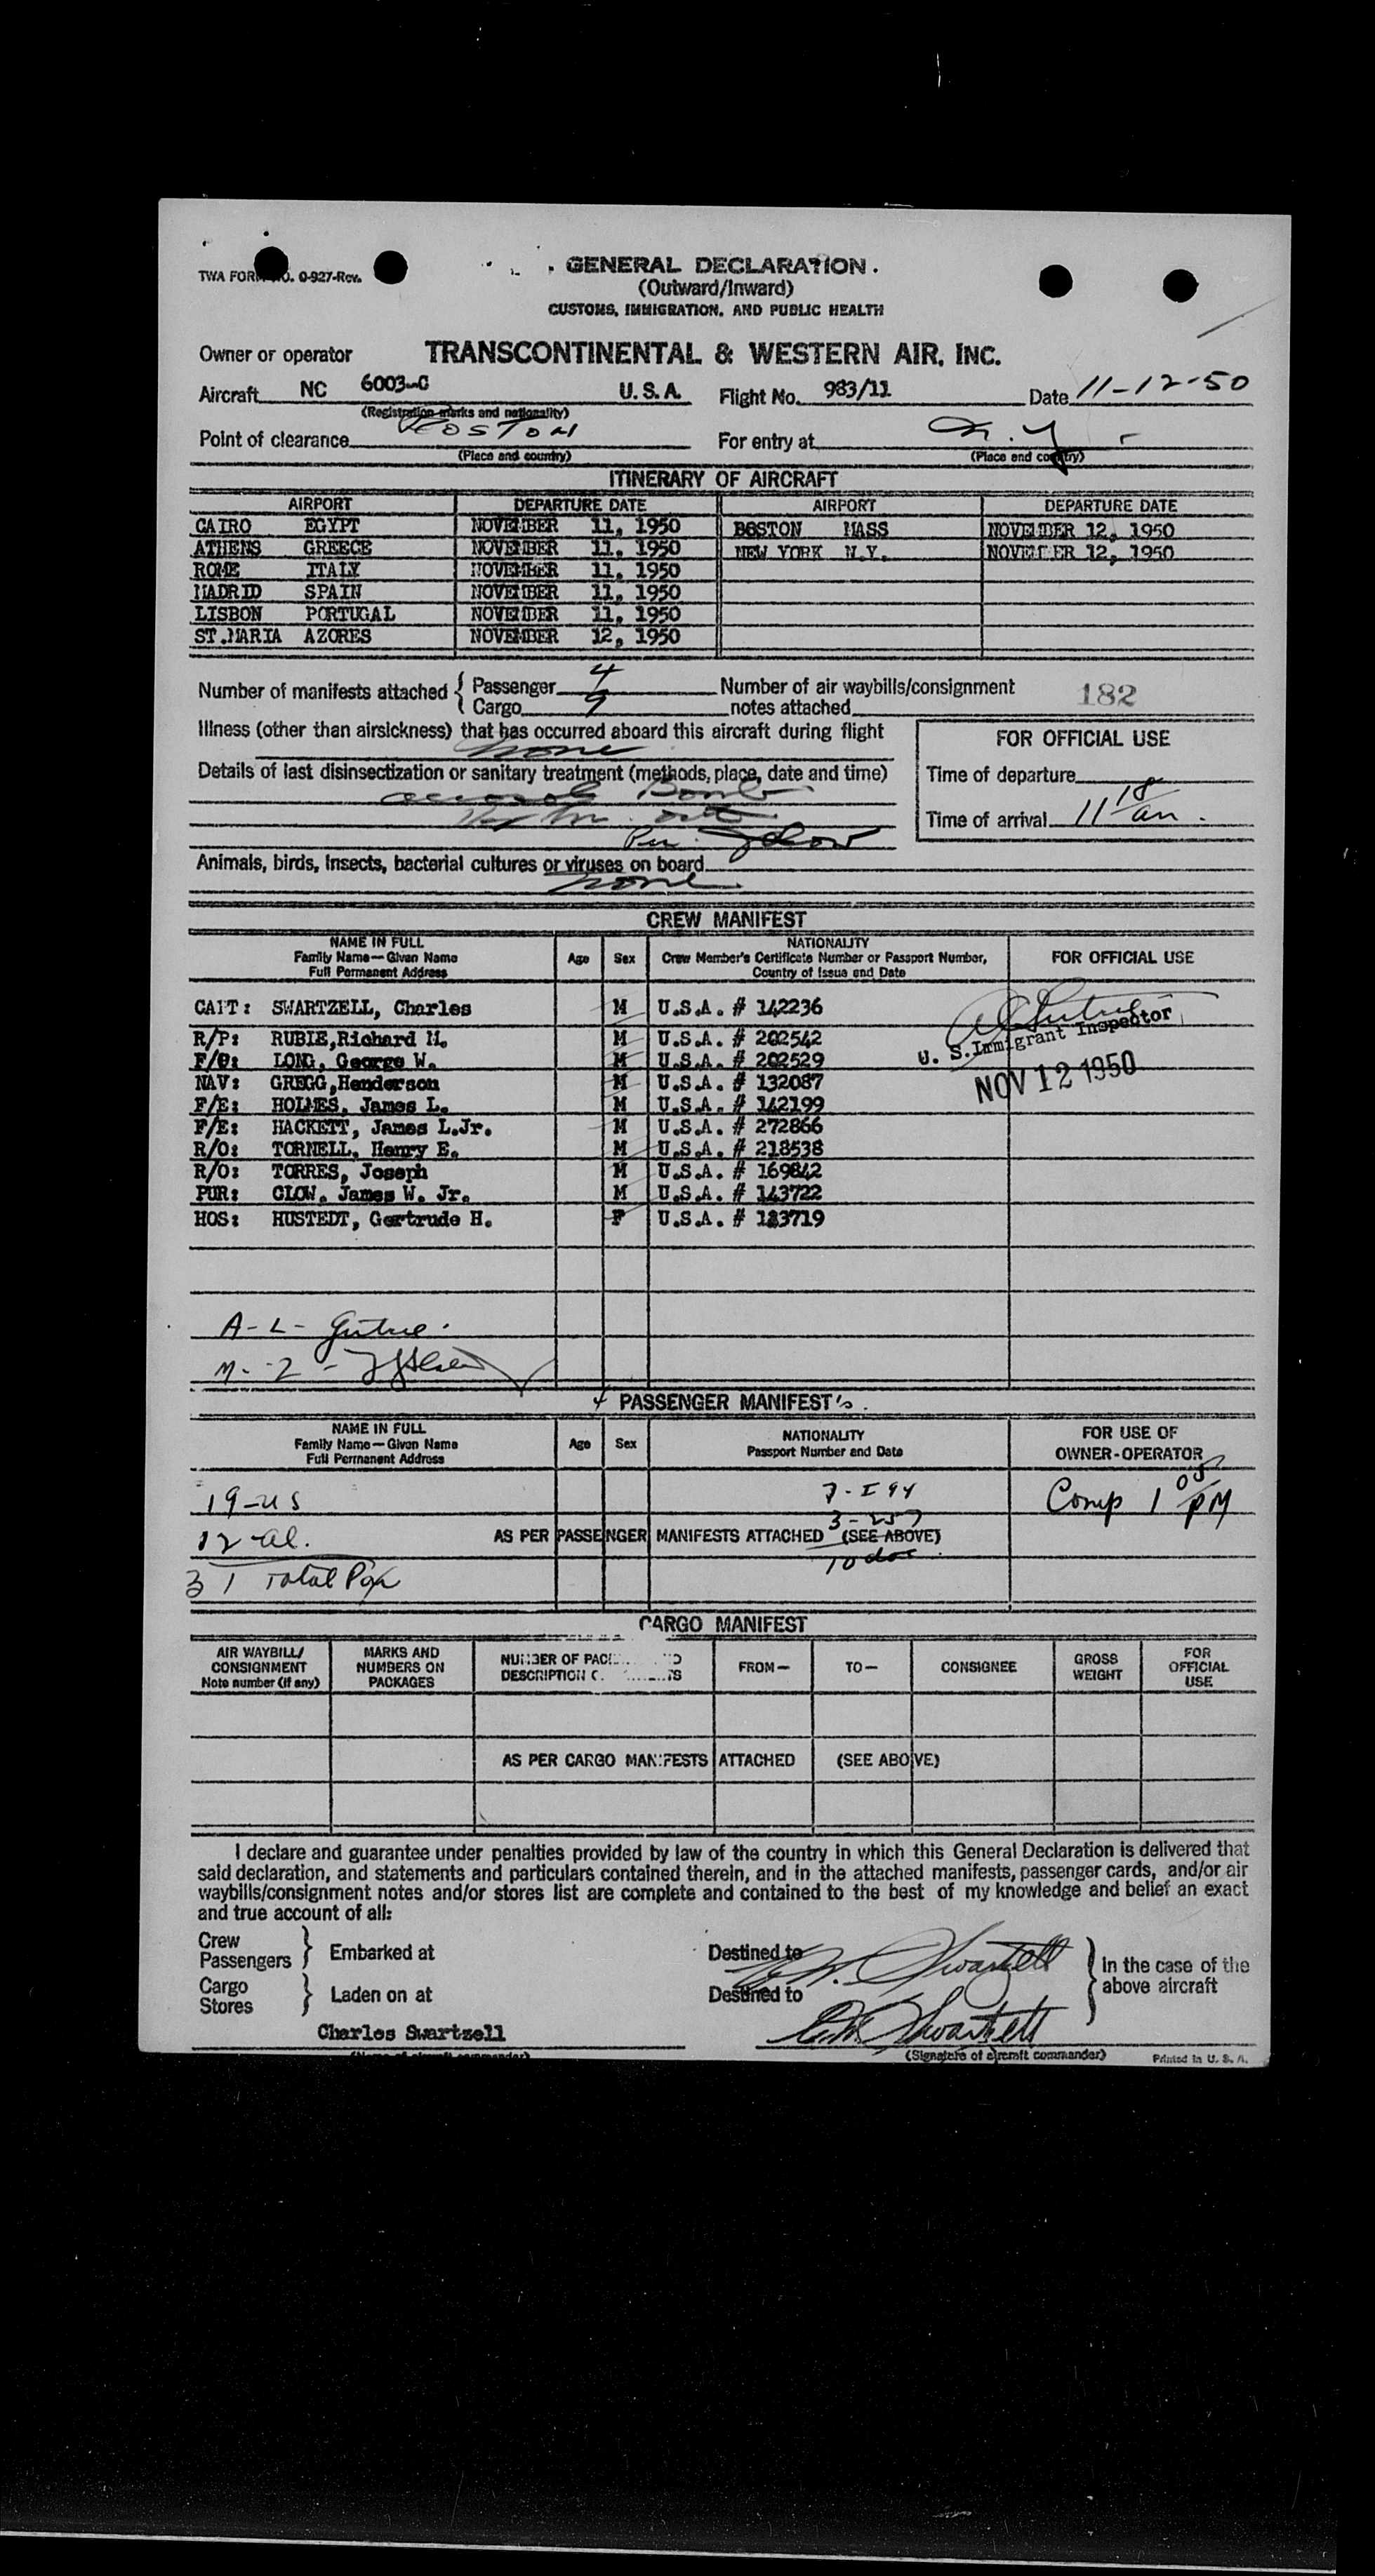 TWA FORM NO. 0-927-Rev.
GENERAL DECLARATION.
(Outward/Inward)
CUSTOMS, IMMIGRATION, AND PUBLIC HEALTH
Owner or operator TRANSCONTINENTAL & WESTERN AIR, INC.
Aircraft NC 6003-C U.S.A. Flight No. 983/11 Date 11-12-50
(Registration marks and nationality)
Point of clearance BOSTON For entry at N.Y.
(Place and country) (Place and country)
ITINERARY OF AIRCRAFT
AIRPORT DEPARTURE DATE AIRPORT DEPARTURE DATE
CAIRO EGYPT NOVEMBER 11, 1950 BOSTON MASS NOVEMBER 12, 1950
ATHENS GREECE NOVEMBER 11, 1950 NEW YORK N.Y. NOVEMBER 12, 1950
ROME ITALY NOVEMBER 11, 1950
MADRID SPAIN NOVEMBER 11, 1950
LISBON PORTUGAL NOVEMBER 11, 1950
ST.MARIA AZORES NOVEMBER 12, 1950
Number of manifests attached { Passenger 4 Number of air waybills/consignment 182
Cargo 9 notes attached
Illness (other than airsickness) that has occurred aboard this aircraft during flight
none
FOR OFFICIAL USE
Details of last disinsectization or sanitary treatment (methods, place, date and time)
Time of departure
aerosol Bomb
out
Time of arrival 11 18 am.
Per
Animals, birds, insects, bacterial cultures or viruses on board
none
CREW MANIFEST
NAME IN FULL
Family Name—Given Name
Full Permanent Address
Age Sex
NATIONALITY
Crew Member's Certificate Number or Passport Number,
Country of Issue and Date
FOR OFFICIAL USE
CAPT: SWARTZELL, Charles M U.S.A. # 142236
R/P: RUBIE,Richard M. M U.S.A. # 202542
F/O: LONG, George W. M U.S.A. # 202529
NAV: GREGG,Henderson M U.S.A. # 132087
F/E: HOLMES, James L. M U.S.A. # 142199
F/E: HACKETT, James L.Jr. M U.S.A. # 272866
R/O: TORNELL, Henry E. M U.S.A. # 218538
R/O: TORRES, Joseph M U.S.A. # 169842
PUR: CLOW, James W. Jr. M U.S.A. # 143722
HOS: HUSTEDT, Gertrude H. F U.S.A. # 123719
U. S. Immigrant Inspector
NOV 12 1950
A-L-
M-2-
4 PASSENGER MANIFEST's.
NAME IN FULL
Family Name—Given Name
Full Permanent Address
Age Sex
NATIONALITY
Passport Number and Date
FOR USE OF
OWNER-OPERATOR
19-US 7-I 94 Comp 1 05 PM
3-257
12-al. AS PER PASSENGER MANIFESTS ATTACHED (SEE ABOVE)
10 doc
31 Total Pax
CARGO MANIFEST
AIR WAYBILL/
CONSIGNMENT
Note number (if any)
MARKS AND
NUMBERS ON
PACKAGES
NUMBER OF
DESCRIPTION
FROM—
TO—
CONSIGNEE
GROSS
WEIGHT
FOR
OFFICIAL
USE
AS PER CARGO MANIFESTS ATTACHED (SEE ABOVE)
I declare and guarantee under penalties provided by law of the country in which this General Declaration is delivered that
said declaration, and statements and particulars contained therein, and in the attached manifests, passenger cards, and/or air
waybills/consignment notes and/or stores list are complete and contained to the best of my knowledge and belief an exact
and true account of all:
Crew
Passengers } Embarked at Destined to
Cargo
Stores } Laden on at Destined to
C.M. Swartzell
} In the case of the
above aircraft
Charles Swartzell C.M. Swartzell
(Name of aircraft commander) (Signature of aircraft commander) Printed in U. S. A.